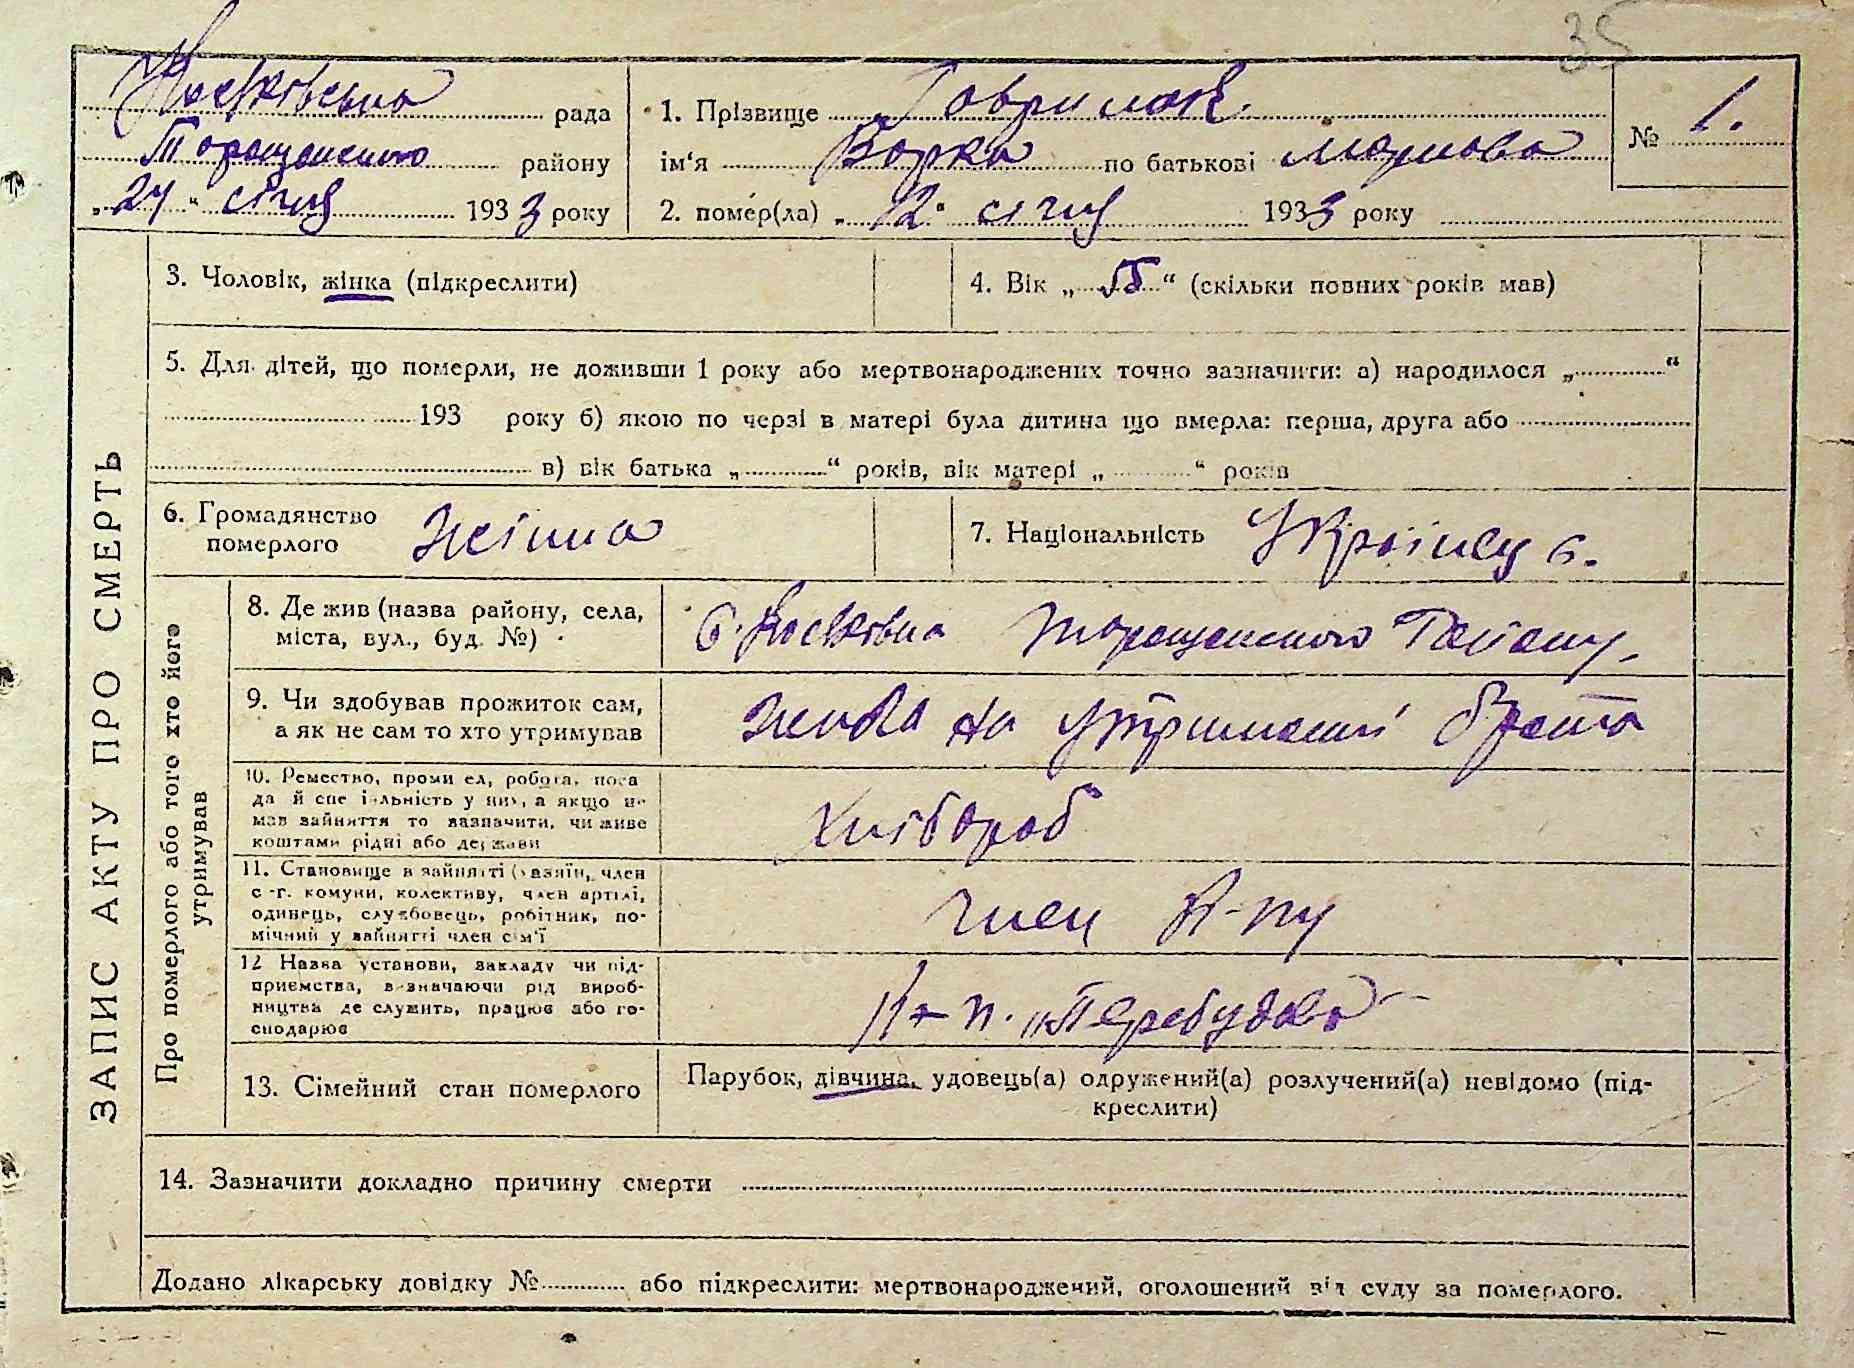 35
Косківська рада
Таращанського району
„24“ січня 1933 року
1. Прізвище Гаврилюк
ім‘я Варка по батькові
2. помер(ла) „12“ січня 1933 року
№ 1.
ЗАПИС АКТУ ПРО СМЕРТЬ
3. Чоловік, жінка (підкреслити)
4. Вік „55“ (скільки повних років мав)
5. Для дітей, що померли, не доживши 1 року або мертвонароджених точно зазначити: а) народилося „ “
193 року б) якою по черзі в матері була дитина що вмерла: перша, друга або
в) вік батька „ “ років, вік матері „ “ років
6. Громадянство
померлого
7. Національність Українц
Про померлого або того хто його
утримував
8. Де жив (назва району, села,
міста, вул., буд. №)
с. Косківка Таращанського Району.
9. Чи здобував прожиток сам,
а як не сам то хто утримував
жила на утриманні брата
10. Ремество, проми ел, робота, поса
да й спе і льність у них, а якщо н-
мав зайняття то зазначити, чи живе
коштами рідні або держави
хлібороб
11. Становище в зайнятті (хазяїн, член
с-г. комуни, колективу, член артілі,
одинець, службовець, робітник, по-
мічний у зайнятті член сім'ї
член К-пу
12 Назва установи, закладу чи під-
приємства, в значаючи рід вироб-
ництва де служить, працює або го-
сподарює
К-п. „Перебудова
13. Сімейний стан померлого
Парубок, дівчина, удовець(а) одружений(а) розлучений(а) невідомо (під-
креслити)
14. Зазначити докладно причину смерти
Додано лікарську довідку № або підкреслити: мертвонароджений, оголошений від суду за померлого.